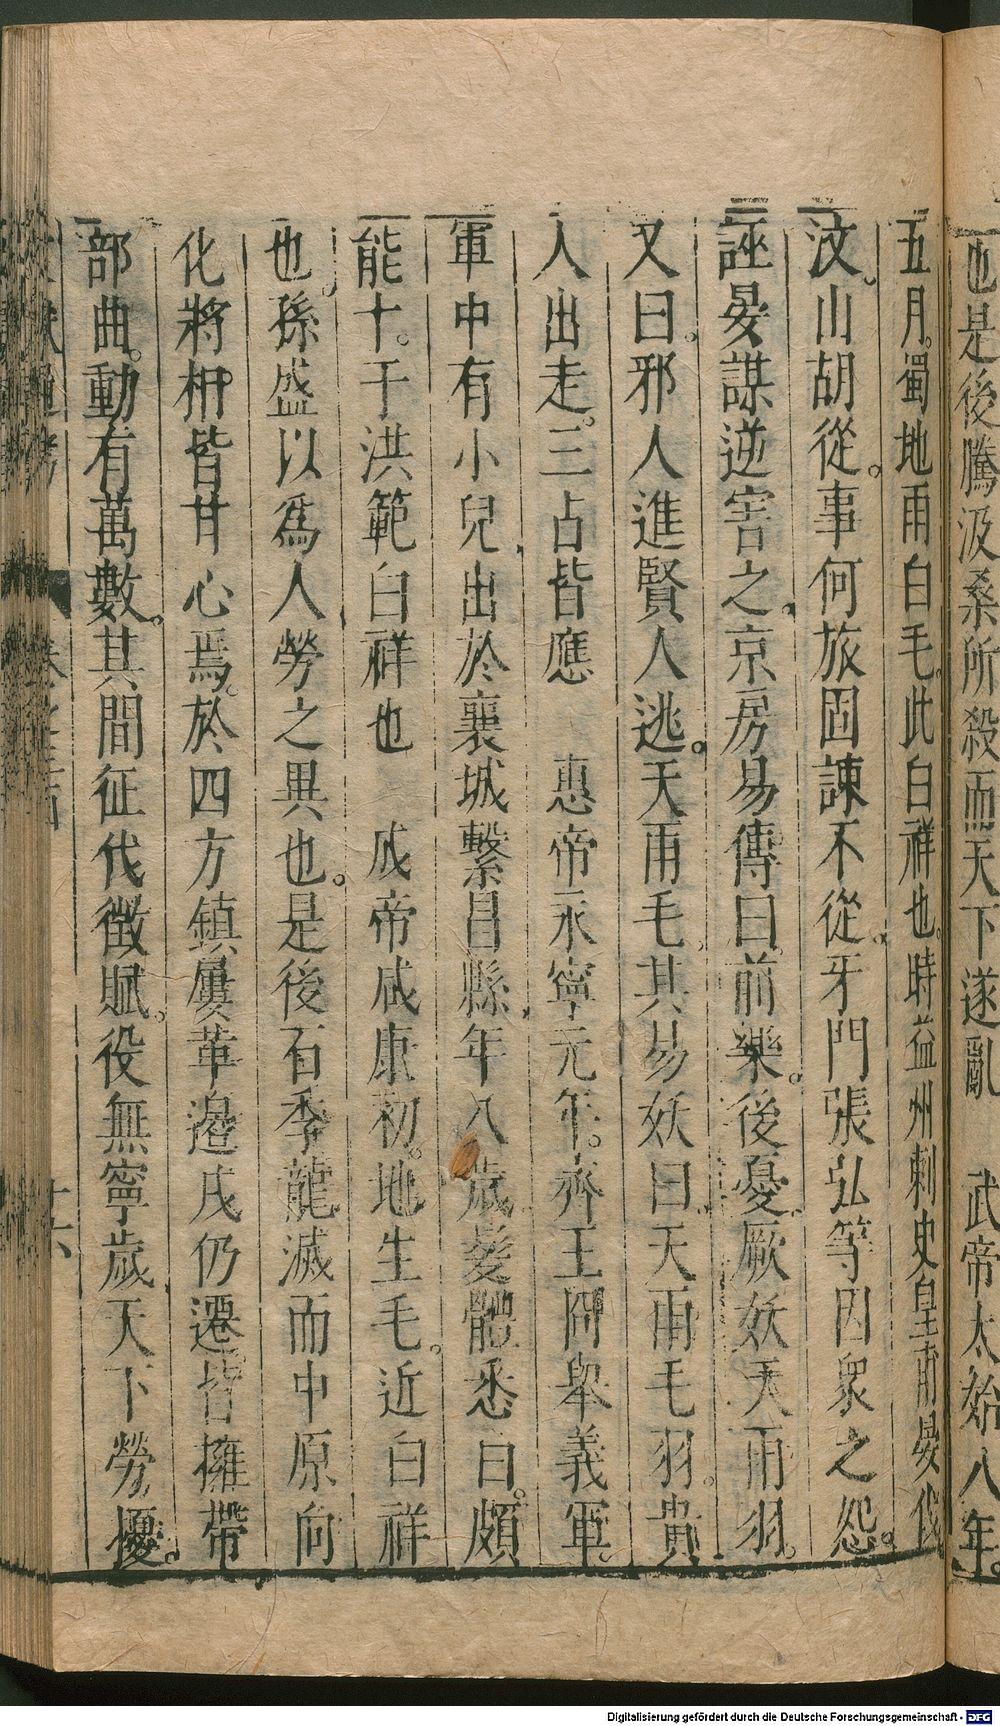 也是後騰汲桑所殺而天下遂亂　武帝太始八年
五月蜀地雨白毛此白祥也時益州刺史皇甫晏伐
汶山胡從事何旅固諫不從牙門張弘等因衆之怨
誣晏謀逆害之京房易傳曰前樂後憂厥妖天雨羽
又曰邪人進賢人逃天雨毛其易妖曰天雨毛羽貴
人出走三占皆應　惠帝永寧元年齊王冏舉義軍
軍中有小兒出於襄城繫昌縣年八歲髮體悉白頗
能十于洪範白祥也　成帝咸康初地生毛近白祥
也孫盛以爲人勞之異也是後石季龍滅而中原向
化將相皆甘心焉於四方鎮屢革邊戍仍遷皆擁帶
部曲動有萬數其間征伐徵賦役無寧歲天下勞擾
十六
Digitalisierung gefördert durch die Deutsche Forschungsgemeinschaft - DFG